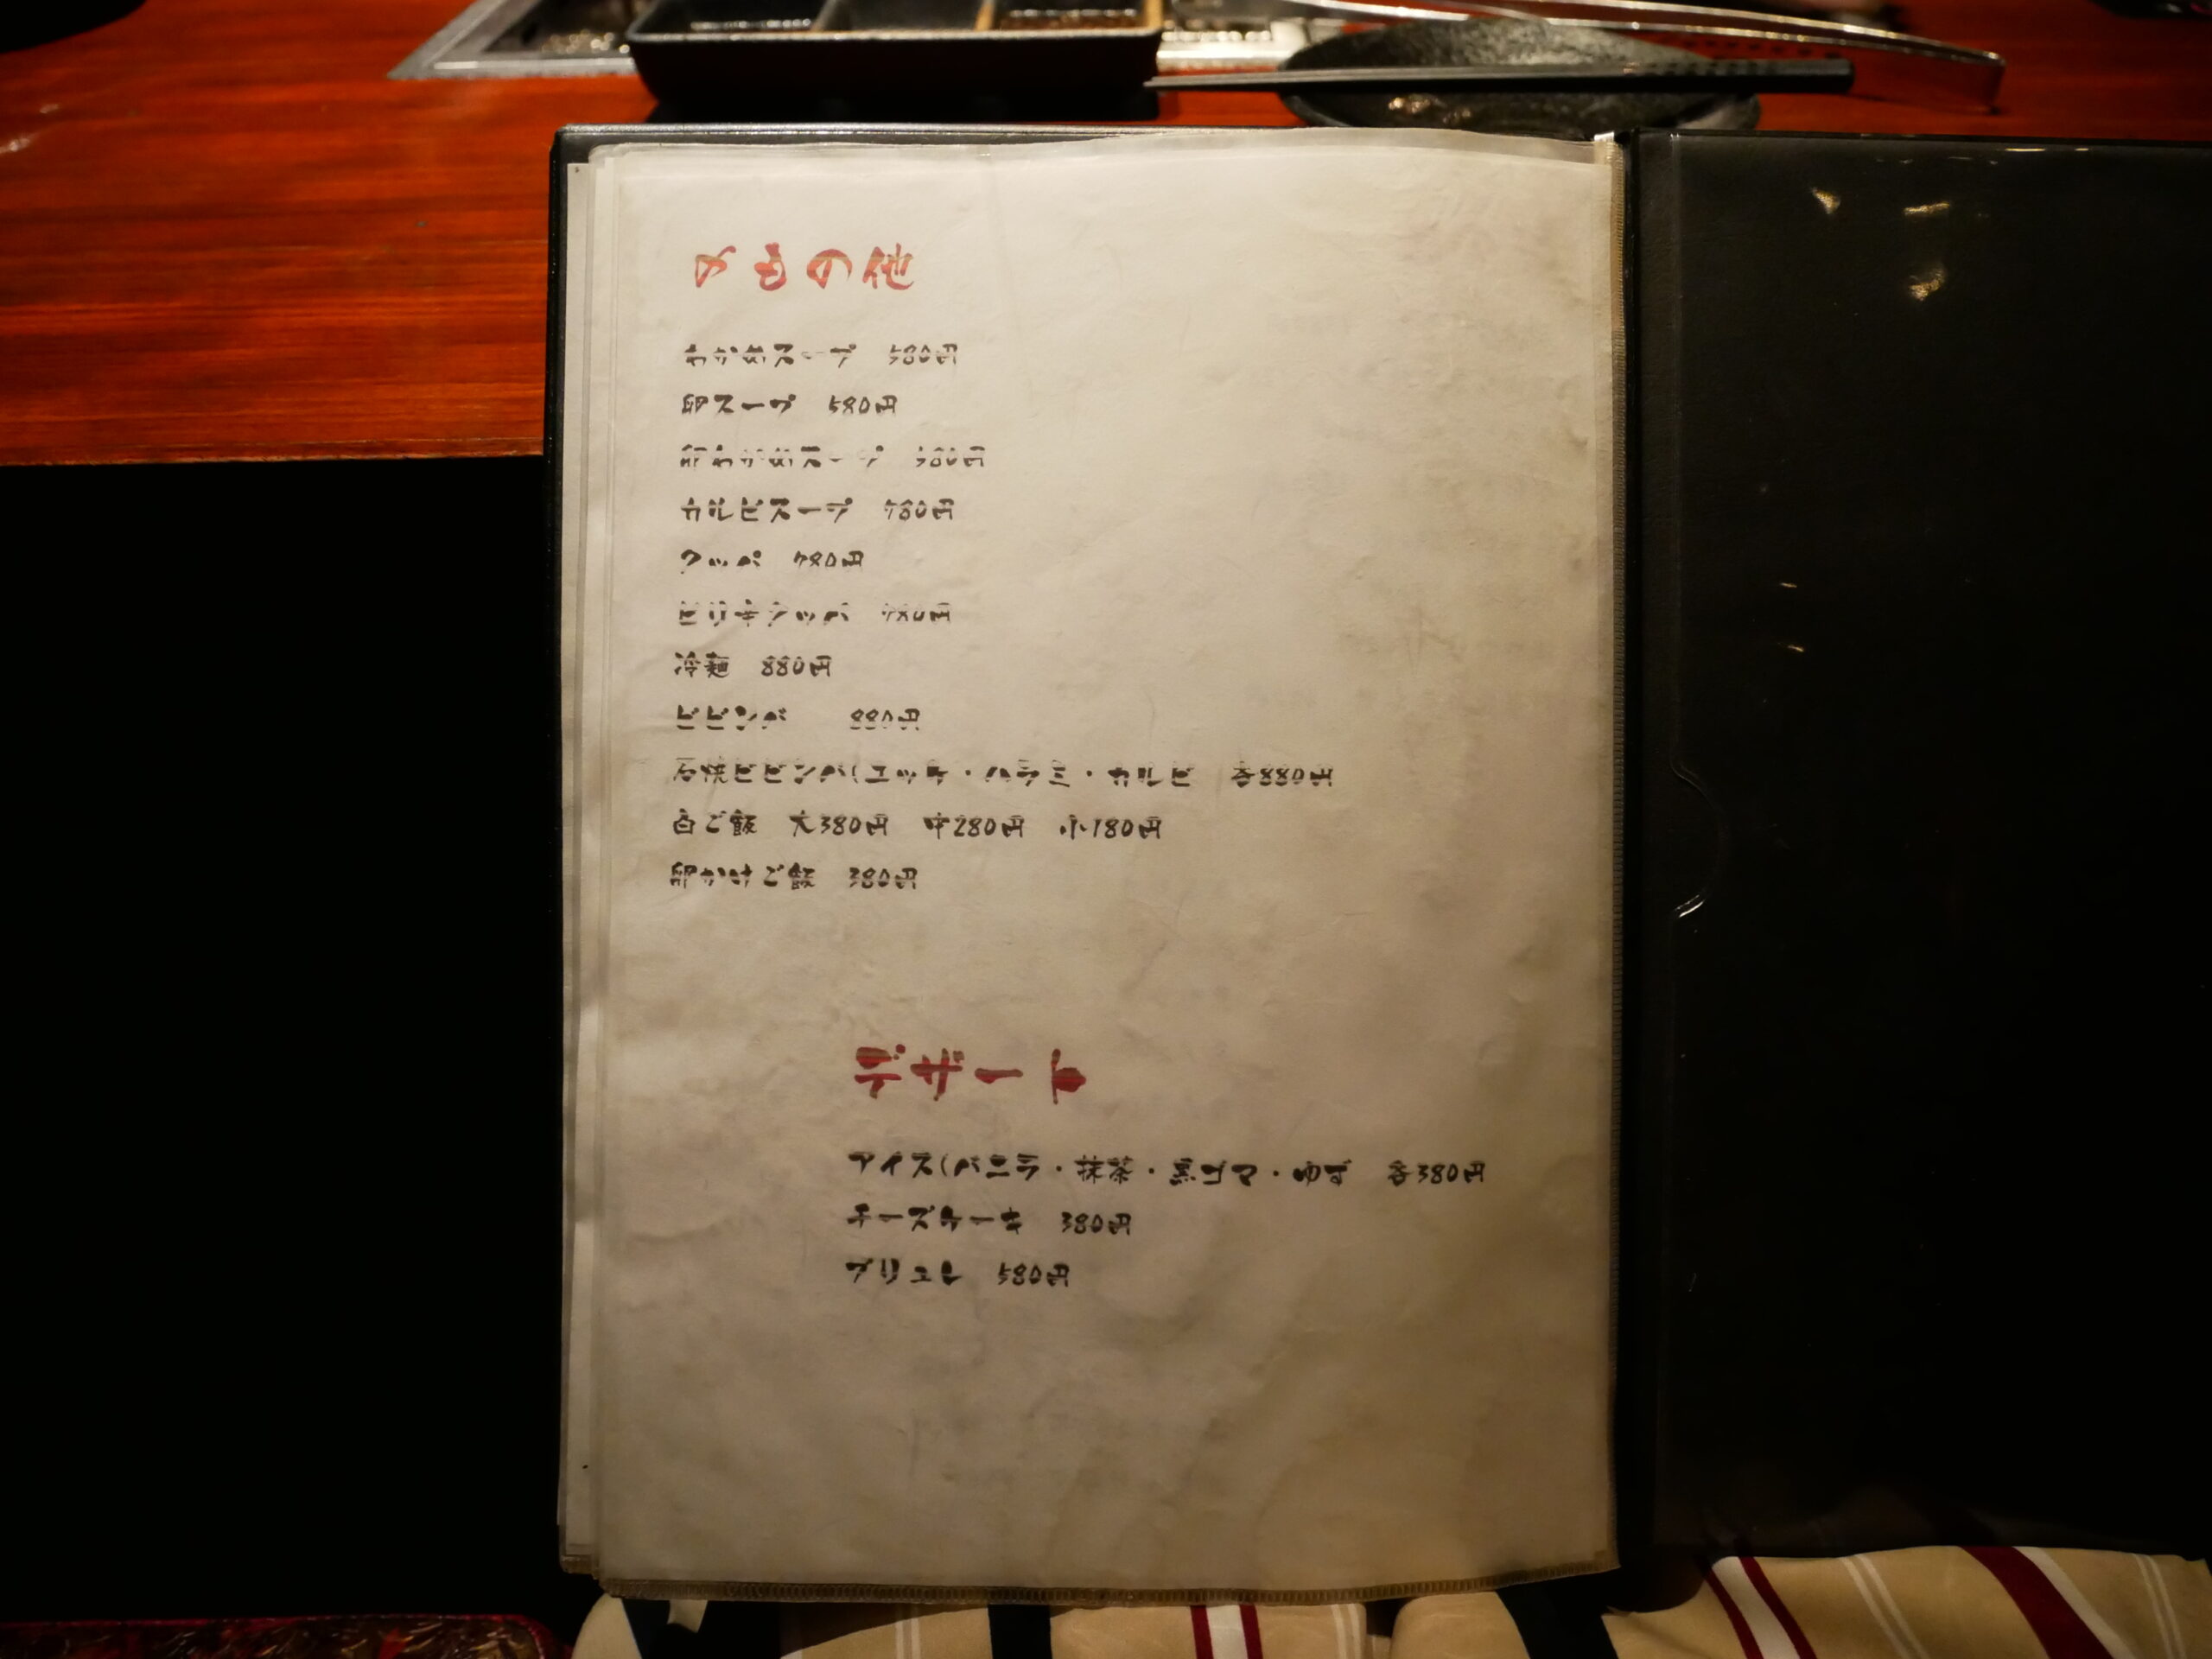 〆もの他
わかめスープ 580円
卵スープ 580円
卵わかめスープ 580円
カルビスープ 780円
クッパ 780円
ピリ辛クッパ 780円
冷麺 880円
ビビンバ 880円
石焼ビビンバ(ユッケ・ハラミ・カルビ 各880円
白ご飯 大380円 中280円 小180円
卵かけご飯 380円
デザート
アイス(バニラ・抹茶・黒ゴマ・ゆず 各380円
チーズケーキ 380円
ブリュレ 580円